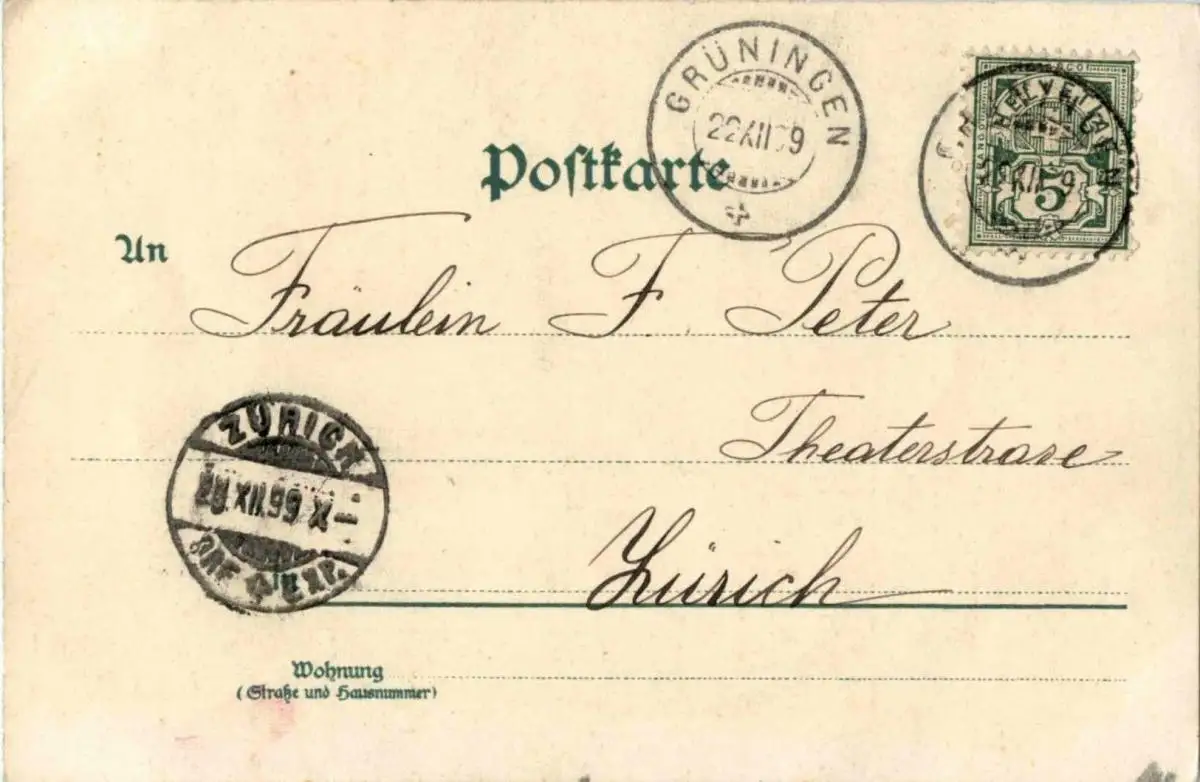 GRÜNINGEN
22 XII 99
HELVETIA
5
Postkarte
An
Fräulein F. Peter
Theaterstrase
ZÜRICH
XII.99.X–
BRF. EXP.
Zürich
Wohnung
(Straße und Hausnummer)